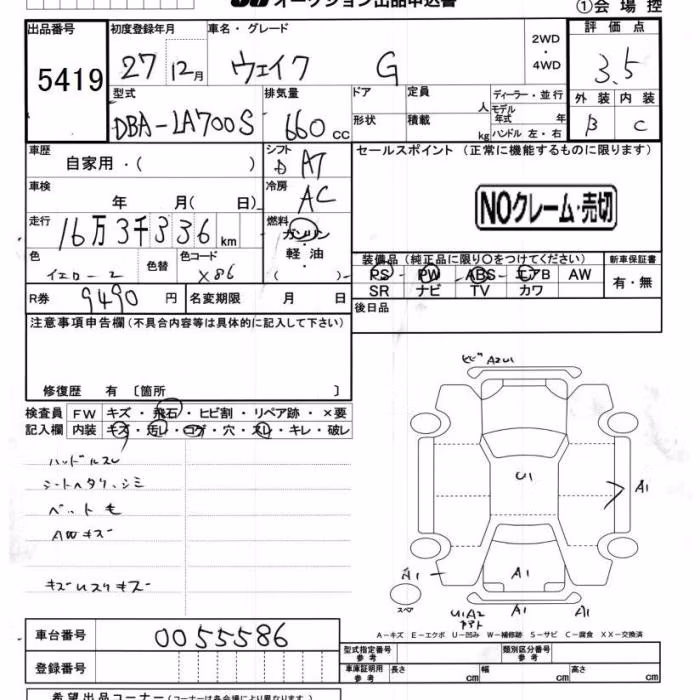 オークション出品申込書
①会場控
出品番号 初度登録年月 車名・グレード 2WD・4WD 評価点
5419 27 12月 ウェイク G 3.5
型式 排気量 ドア 定員 人 ディーラー・並行 外装 内装
DBA-LA700S 660cc 形状 積載 kg モデル年式 年 ハンドル 左・右 B C
車歴 自家用・( ) シフト AT セールスポイント (正常に機能するものに限ります)
車検 年 月( 日) 冷房 AC
NOクレーム・売切
走行 16万3千336km 燃料 ガソリン・軽油・( )
色 イエロー2 色替 色コード X86
装備品(純正品に限り○をつけてください) 新車保証書
PS PW ABS エアB AW 有・無
SR ナビ TV カワ
R券 9490円 名変期限 月 日
後日品
注意事項申告欄(不具合内容等は具体的に記入して下さい)
修復歴 有〔箇所 〕
検査員 FW キズ・飛石・ヒビ割・リペア跡・×要
記入欄 内装 キズ・汚レ・コゲ・穴・スレ・キレ・破レ
ハンドルスレ
シートヘタリ、シミ
ペット毛
AWキズ
A2 U1
U1
A1
A1
A1
スペア
U1 A2
A1
A1
A-キズ E-エクボ U-凹み W-補修跡 S-サビ C-腐食 XX-交換済
車台番号 0055586
登録番号
型式指定番号 参考 類別区分番号 参考
車庫証明用 参考 長さ cm 幅 cm 高さ cm
希望出品コーナー(コーナーは各会場により異なります)